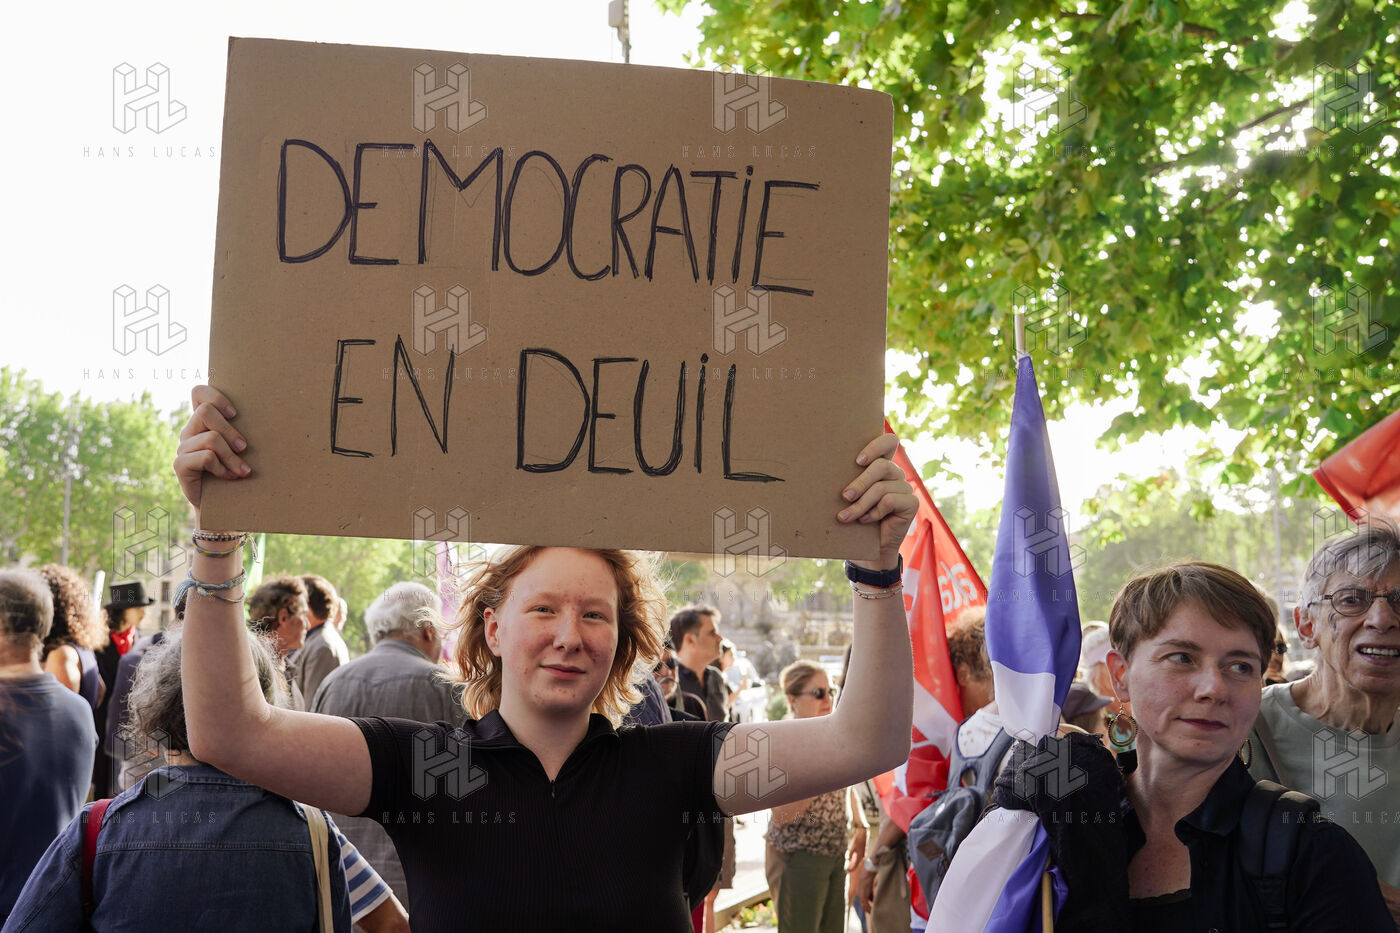 DEMOCRATIE
EN DEUIL
HANS LUCAS